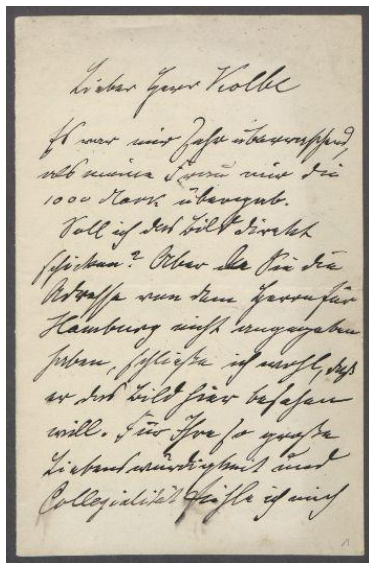 Lieber Herr Kolbe
Es war mir sehr überraschend,
als meine Frau mir die
1000 Mark übergab.
Soll ich das Bild direkt
schicken? Aber da Sie die
Adresse von dem Herrn für
Hamburg nicht angegeben
haben, schließe ich wohl, daß
er das Bild hier besehen
will. Für Ihre so große
Liebenswürdigkeit und
Collegialität fühle ich mich